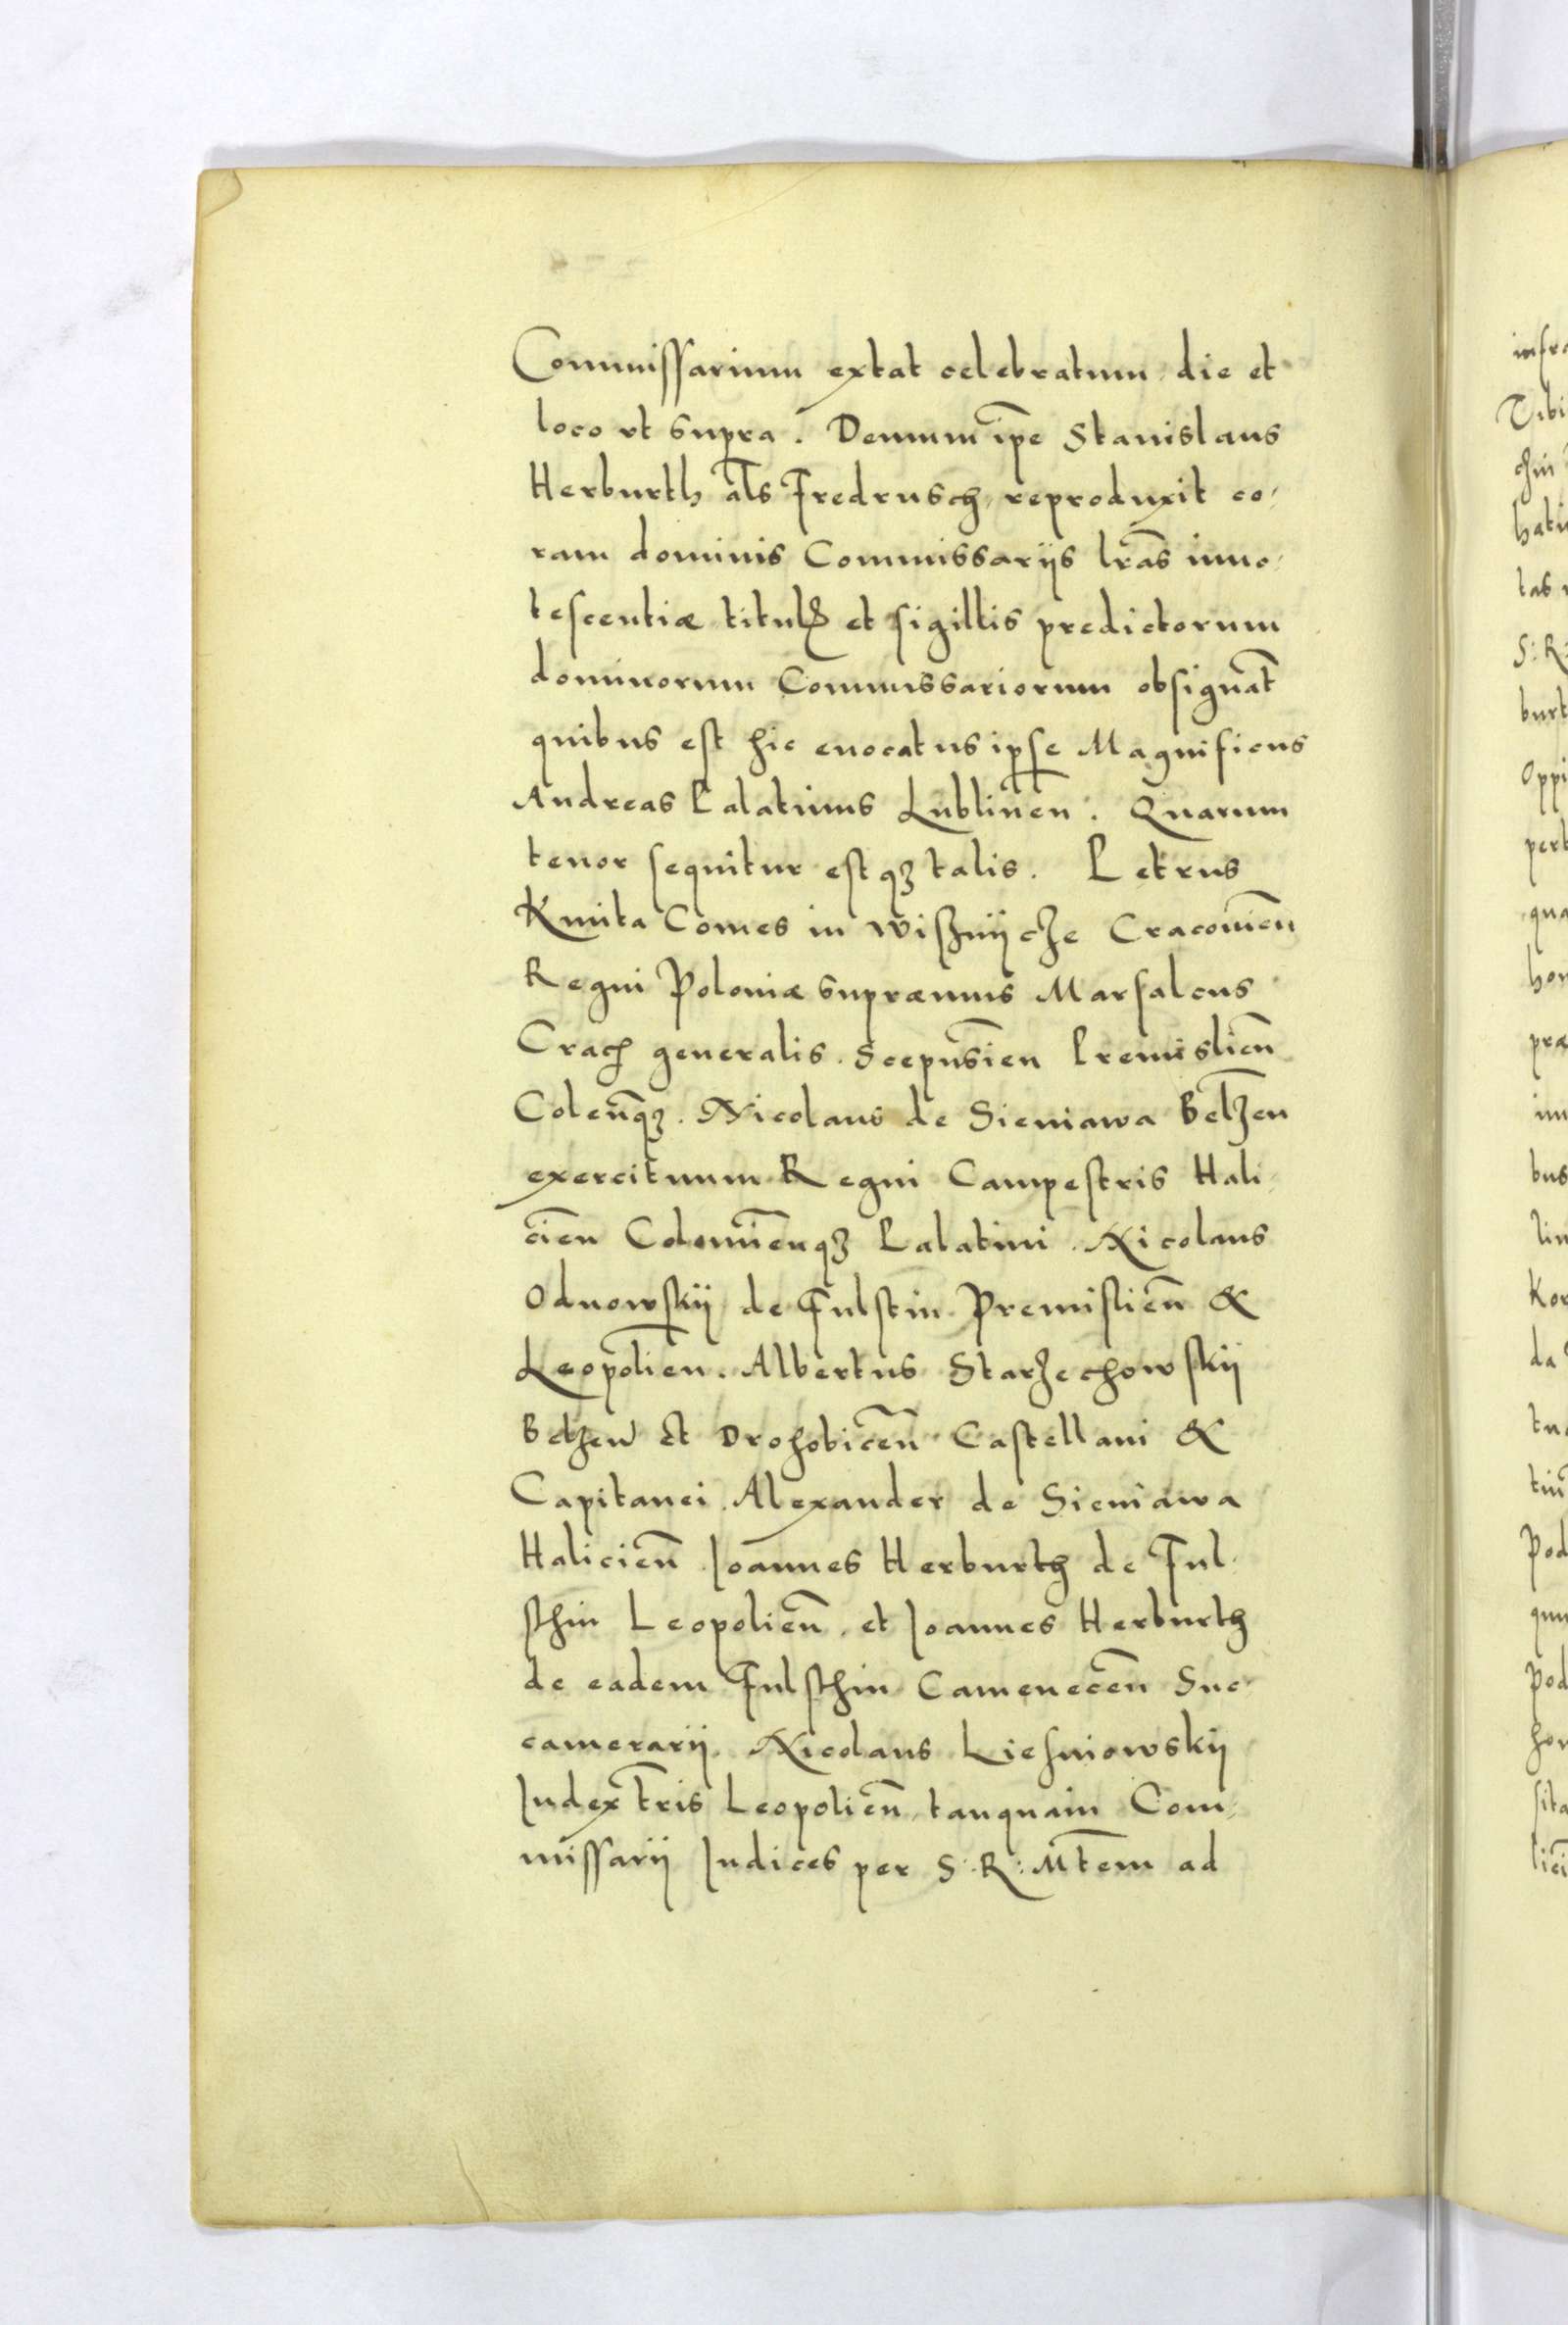 Commissarium extat celebratum die et
loco vt supra. Demum ip̄e Stanislaus
Herburth al̄s Fredrusch reproduxit co,
ram dominis Commissarijs lr̄as inno,
tescentiæ titul⁊ et sigillis predictorum
dominorum Commissariorum obsignat̄
quibus est hic euocatus ipse Magnificus
Andreas Palatinus Lublinen̄. Quarum
tenor sequitur estqꝫ talis. Petrus
Kmita Comes in Wisznijcze Cracouien̄
Regni Poloniæ supræmus Marsalcus
Crach generalis. Scepusīen Premislien̄
Colen̄qꝫ. Nicolaus de Sieniawa Belz̄en
exercituum Regni Campestris Hali,
cīen Colomīenqꝫ Palatini. Nicolaus
Odnowskij de Fulstin Premislien̄ &
Leopolīen. Albertus Starzechowskij
Belzen̄ et Drohobicen̄ Castellani &
Capitanei. Alexander de Sieniawa
Halicien̄ Ioannes Herburth de Ful,
sthin Leopolien̄. et Ioannes Herburth
de eadem Fulsthin Camenecen̄ Suc
camerarij. Nicolaus Liesniowskij
Iudex tr̄is Leopolien̄ tanquam Com,
missarij Iudices per S: R: Mt̄em ad
infra
Vibi
chin
hati
tas
S: R:
burt
Oppi
pert
qua
hon
præ
bus
lin
Kor
da
Pod
Pod
hon
sita